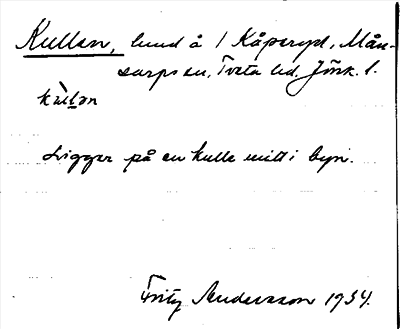 Kullen, lund å 1 Kåperyd, Mån-
sarps sn, Tveta hd. Jönk. l.
kùl̲ən
Ligger på en kulle mitt i byn.
Fritz Andersson 1934.